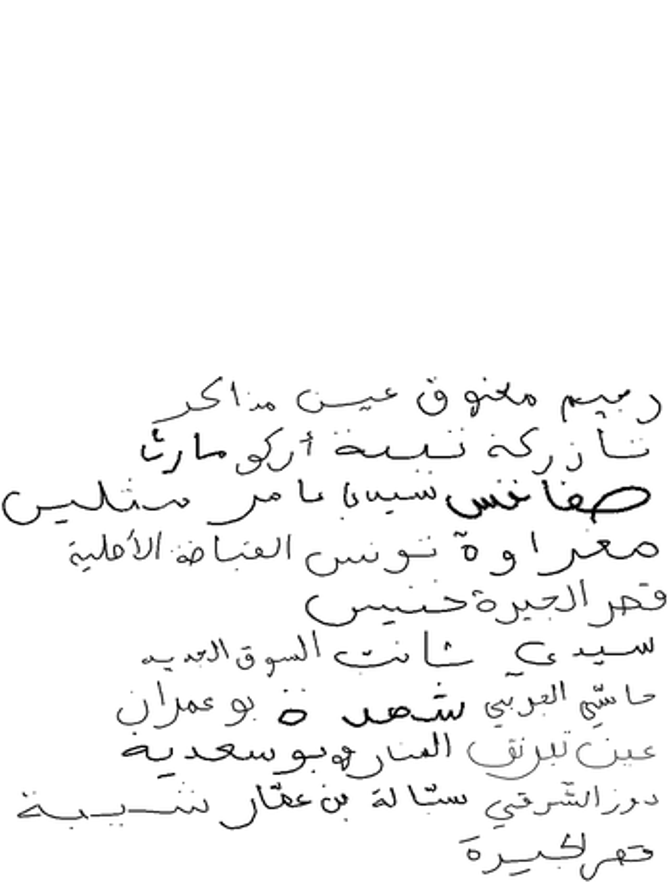 رجيم معتوق عين مذاكر
تازركة تبسة أركو مارث
صفاقس سيدي عامر ستليس
مغراوة تونس الفياضة الأهلية
قصر الجيرة خنيس
سيدي شانت السوق الجديد
حاسي الفريد بو عمران
عين تبرنق المنارة بو سعدية
دوز الشرقي ستالة بن عمّار شبيبة
قصر الجيرة